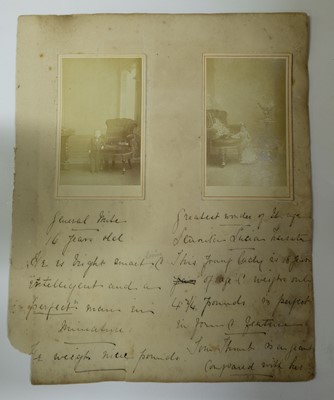 General Mite
16 years old
He is bright smart &
intelligent and a
perfect man in
Miniature
He weighs nine pounds
Greatest wonder of the age
Lucia
This young lady is 16 years
of age & weighs only
4 3/4 pounds, is perfect
in form &
Tom Thumb was giant
compared with her